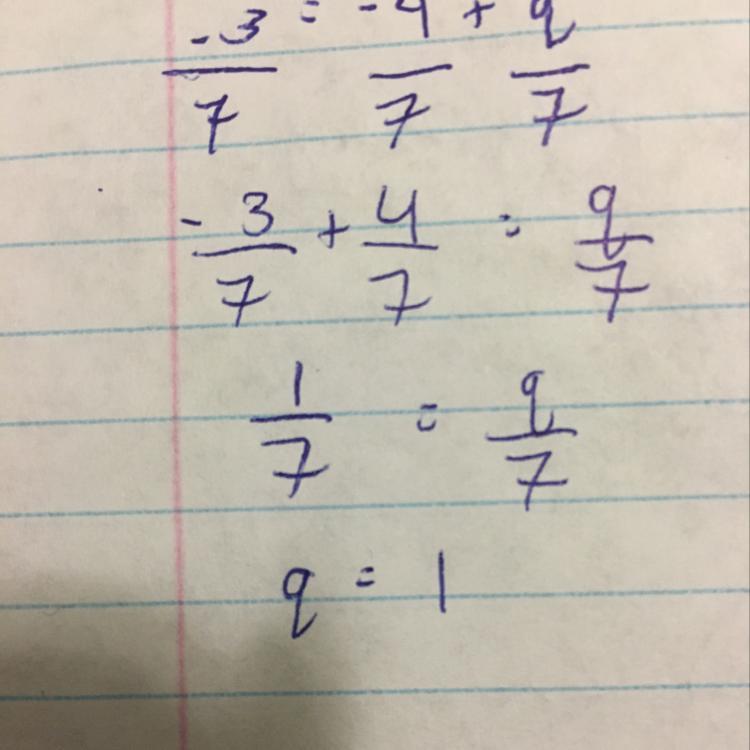 -3/7 = -4/7 + q/7
-3/7 + 4/7 = q/7
1/7 = q/7
q = 1